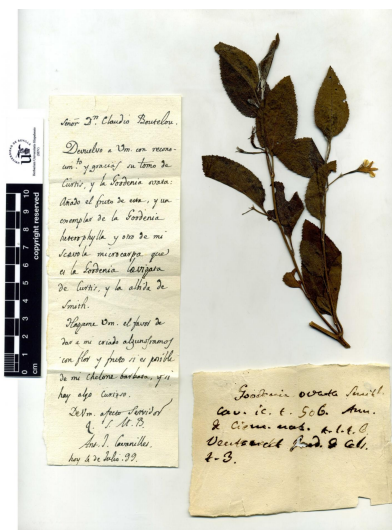 Señor Dn. Claudio Boutelou.
Devuelvo a Vm. con recono-
cim.to y gracias su tomo de
Curtis, y la Gordenia ovata:
Añado el fruto de esta, y un
exemplar de la Gordenia
heterophylla y otro de mi
scavola microcarpa, que
es la Gordenia lævigata
de Curtis, y la albida de
Smith.
Hagame Vm. el favor de
dar a mi criado algunos ramos
con flor y fruto si es posible
de mi Chelone barbata, y si
hay algo curioso.
De Vm. afecto Servidor
Q. S. M. B.
Ant. J. Cavanilles.
hoy 4 de Julio. 99.
copyright reserved
0 1 2 3 4 5 6 7 8 9 10
cm
Goodenia ovata Smith.
Cav. ic. t. 506. Ann.
de Cienc. nat.
Ventenat Jard. de Cels.
t. 3.